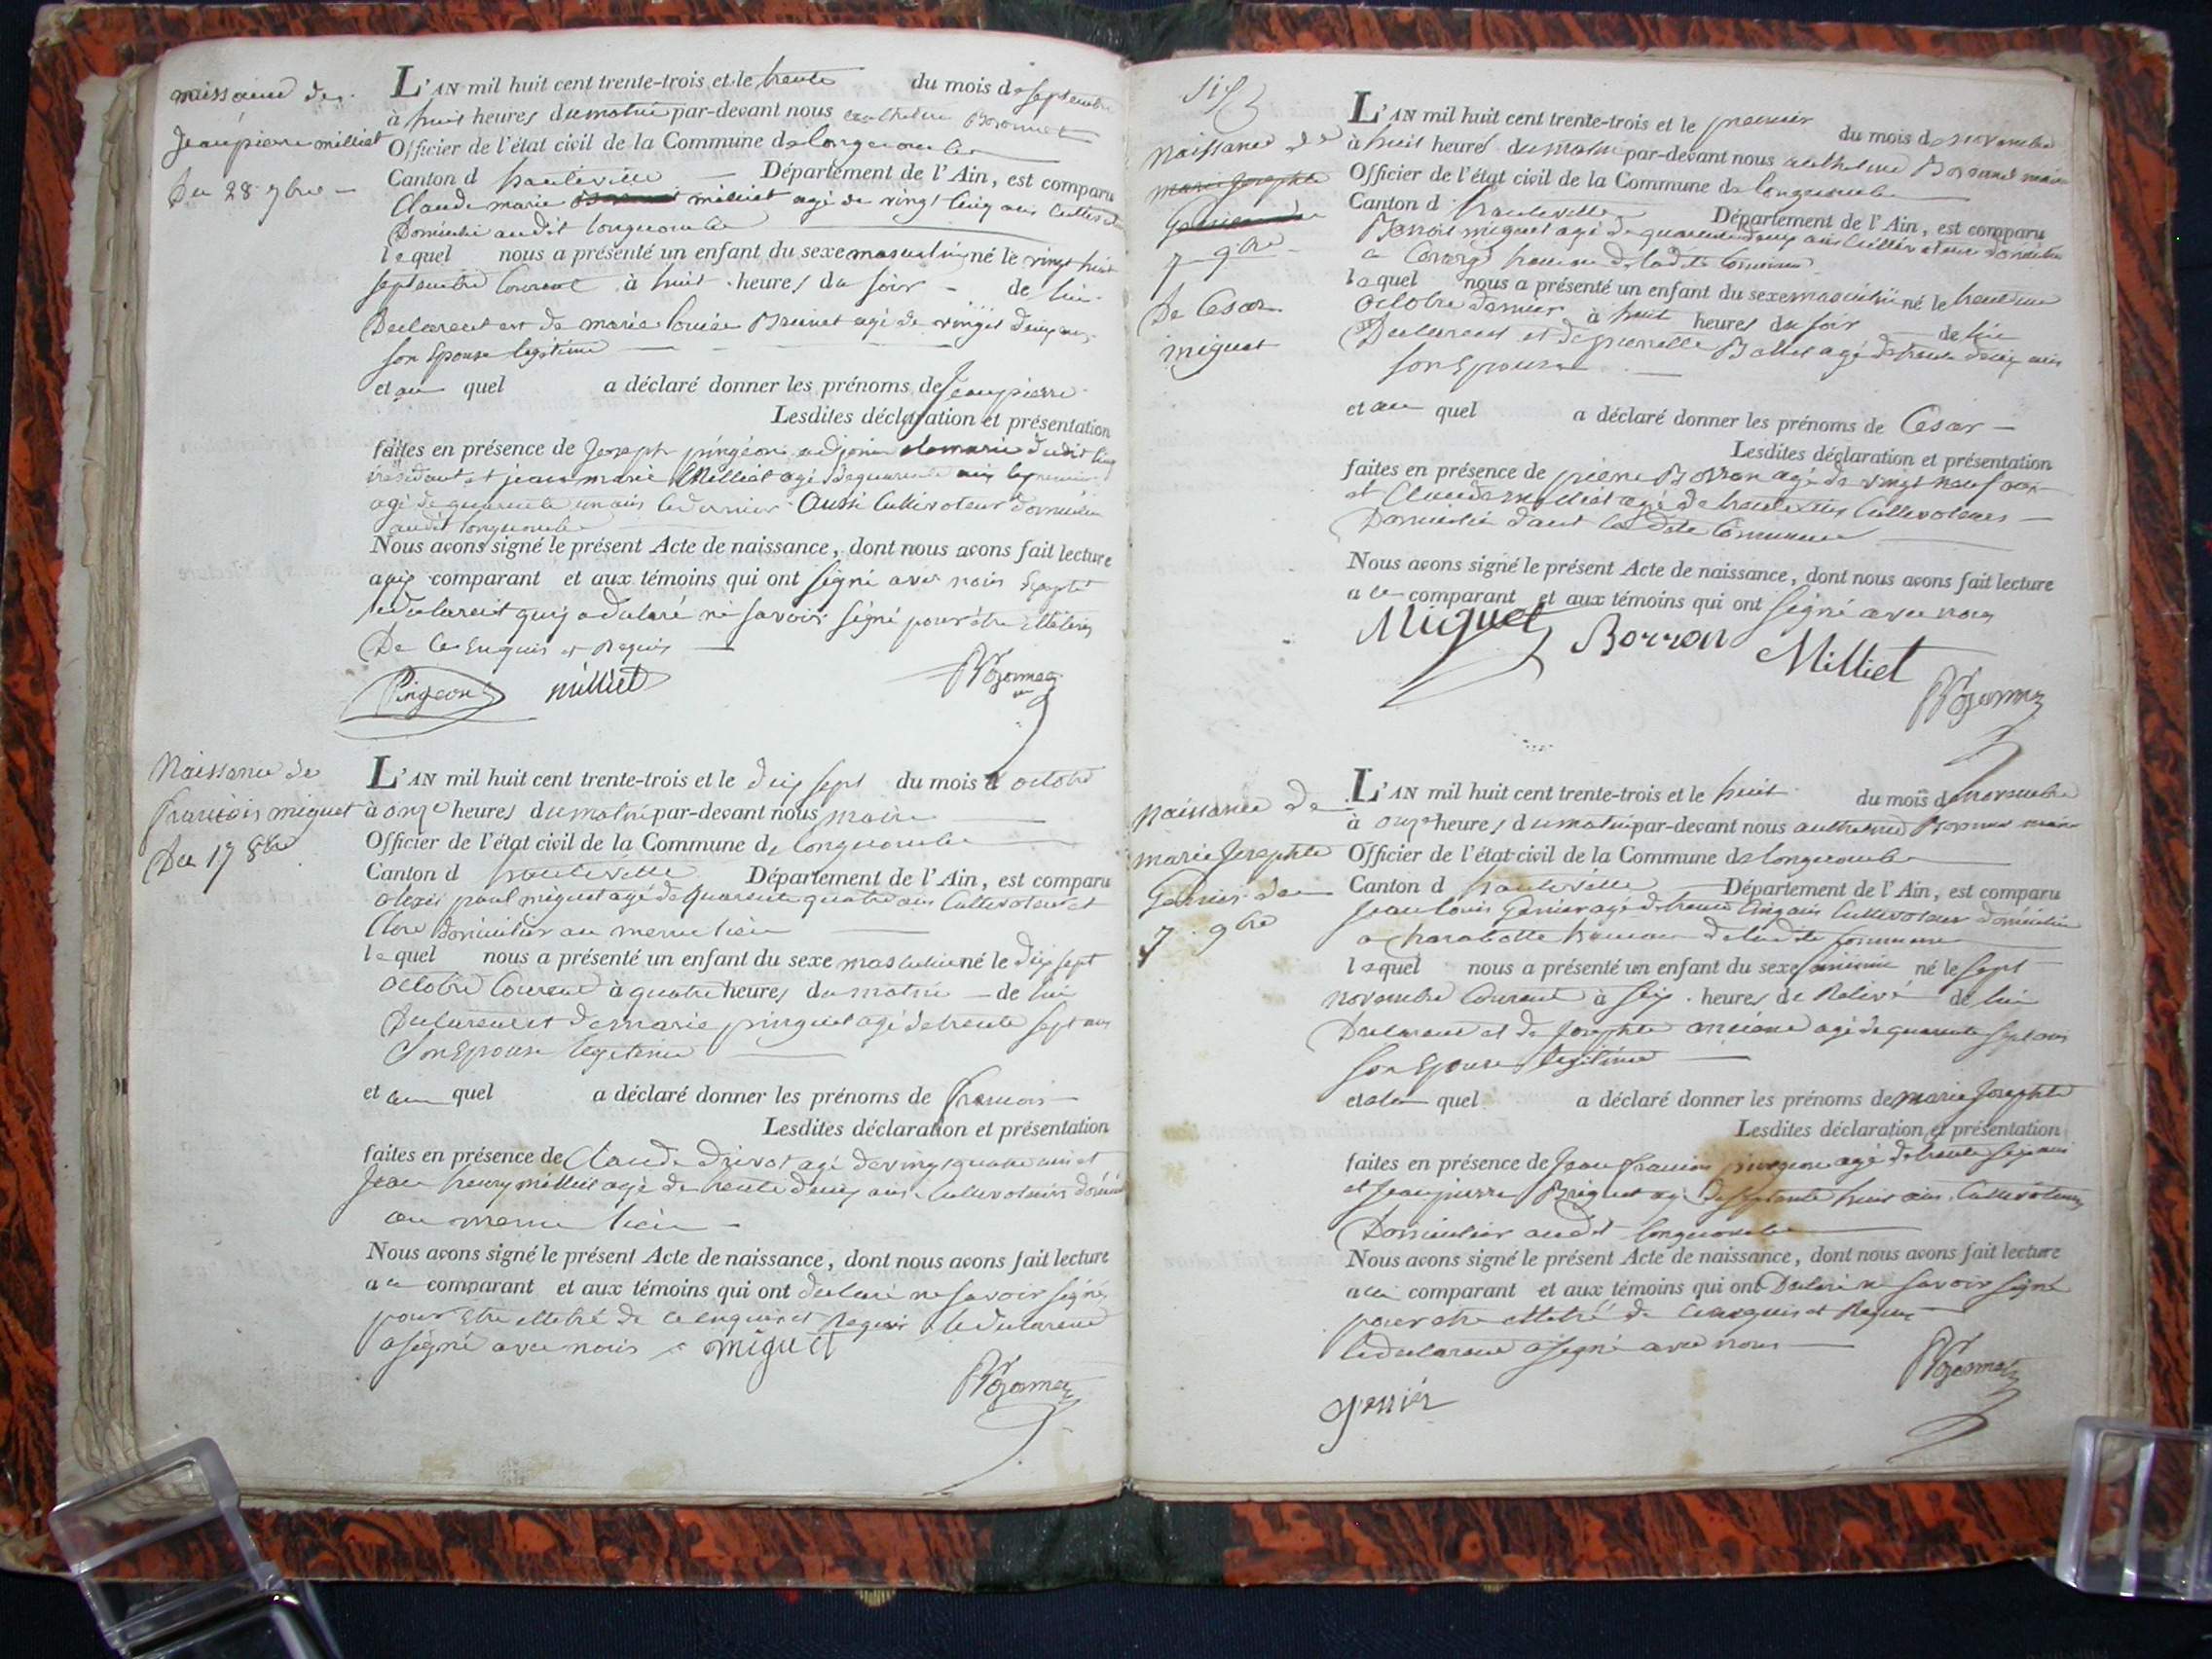 naissance de
Jean pierre milliet
Du 28 7bre
L'AN mil huit cent trente-trois et le trente du mois de septembre
à huit heures du matin par-devant nous
Officier de l'état civil de la Commune de longecombe
Canton d hauteville Département de l'Ain, est comparu
Claude marie milliet agé de vingt cinq ans
Domicilié audit longecombe
lequel nous a présenté un enfant du sexe masculin né le vingt huit
septembre Courant à huit heures du soir de lui
Declarent et de marie louise Brunet agé de vingt deux ans
son Epouse legitime
et au quel a déclaré donner les prénoms de Jean pierre
Lesdites déclaration et présentation
faites en présence de Joseph pingeon adjoint
et jean marie Milliet agé de quarante
agé de quarante un ans le dernier Aussi Cultivateur
audit longecombe
Nous avons signé le présent Acte de naissance, dont nous avons fait lecture
aux comparant et aux témoins qui ont signé avec nous Excepté
le declarent qui a declaré ne savoir signé pour être illétéré
De Ce Enquis et Requis
Pingeon milliet
Naissance de
francois miguet
Du 17 8bre
L'AN mil huit cent trente-trois et le dix sept du mois d octobre
à onze heures du matin par-devant nous maire
Officier de l'état civil de la Commune de longecombe
Canton d hauteville Département de l'Ain, est comparu
alexis paul miguet agé de quarante quatre ans Cultivateur et
domicilier au meme lieu
lequel nous a présenté un enfant du sexe masculin né le Dix sept
octobre Courant à quatre heures du matin de lui
Declarent et de marie pinguet agé de trente sept ans
Son Epouse legitime
et au quel a déclaré donner les prénoms de francois
Lesdites déclaration et présentation
faites en présence de Claude Drivot agé de vingt quatre ans et
Jean henry milliet agé de trente deux ans Cultivateurs
au meme lieu
Nous avons signé le présent Acte de naissance, dont nous avons fait lecture
au comparant et aux témoins qui ont declaré ne savoir signé
pour Etre illetré de ce enquis et Requis le declarent
a signé avec nous miguet
Naissance de
marie Josephte
7 9bre
De Cesar
miguet
L'AN mil huit cent trente-trois et le premier du mois de novembre
à huit heures du matin par-devant nous maire
Officier de l'état civil de la Commune de longecombe
Canton d hauteville Département de l'Ain, est comparu
Benoit miguet agé de quarante deux ans Cultivateur
a hameau de ladite Commune
lequel nous a présenté un enfant du sexe masculin né le trente un
octobre dernier à huit heures du soir de lui
Declarent et de pierrette Ballet agé de trente deux ans
son Epouse
et au quel a déclaré donner les prénoms de Cesar
Lesdites déclaration et présentation
faites en présence de pierre Borron agé de vingt neuf ans
et Claude milliet agé de trente Cultivateurs
Domicilié dans la dite Commune
Nous avons signé le présent Acte de naissance, dont nous avons fait lecture
a le comparant et aux témoins qui ont signé avec nous
Miguet Borron Milliet
Naissance de
marie Josephte
7 9bre
L'AN mil huit cent trente-trois et le huit du mois de novembre
à onze heures du matin par-devant nous maire
Officier de l'état civil de la Commune de longecombe
Canton d hauteville Département de l'Ain, est comparu
Jean louis agé de trente Cinq ans Cultivateur domicilié
a charabotte hameau de ladite Commune
lequel nous a présenté un enfant du sexe feminin né le sept
novembre Courant à six heures de Relevé de lui
Declarent et de Josephte anciane agé de quarante sept ans
son Epouse legitime
et a la quel a déclaré donner les prénoms de marie Josephte
Lesdites déclaration et présentation
faites en présence de Jean francois pingeon agé de trente six ans
et Jean pierre Briguet agé de septante huit ans Cultivateurs
Domicilier audit longecombe
Nous avons signé le présent Acte de naissance, dont nous avons fait lecture
au comparant et aux témoins qui ont Declaré ne savoir signé
pour etre illetré de Ce enquis et Requis
le declarent a signé avec nous